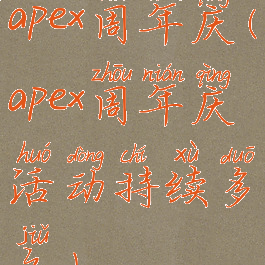 apex周年庆(
zhōu nián qìng
apex周年庆
huó dòng chí xù duō
活动持续多
jiǔ
)